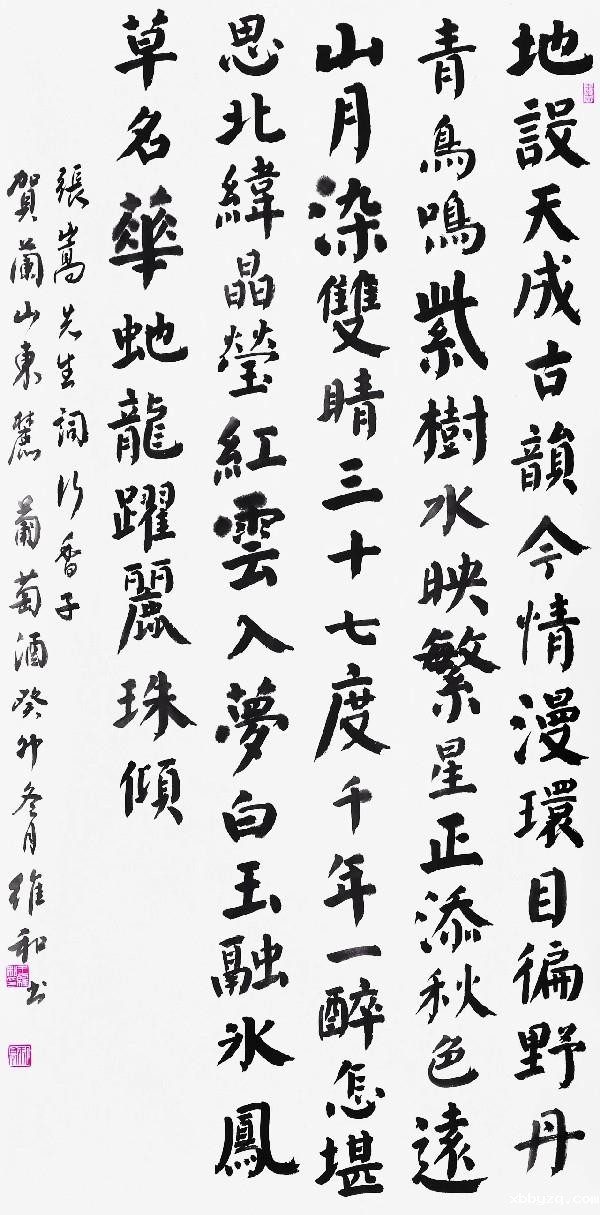 地設天成古韻今情漫環目徧野丹
青鳥鳴紫樹水映繁星正添秋色遠
山月染雙睛三十七度千年一醉怎堪
思北緯晶瑩紅雲入夢白玉融氷鳳
草名華虵龍躍麗珠傾
張嵩先生詞行香子
賀蘭山東麓葡萄酒癸卯冬月維和書